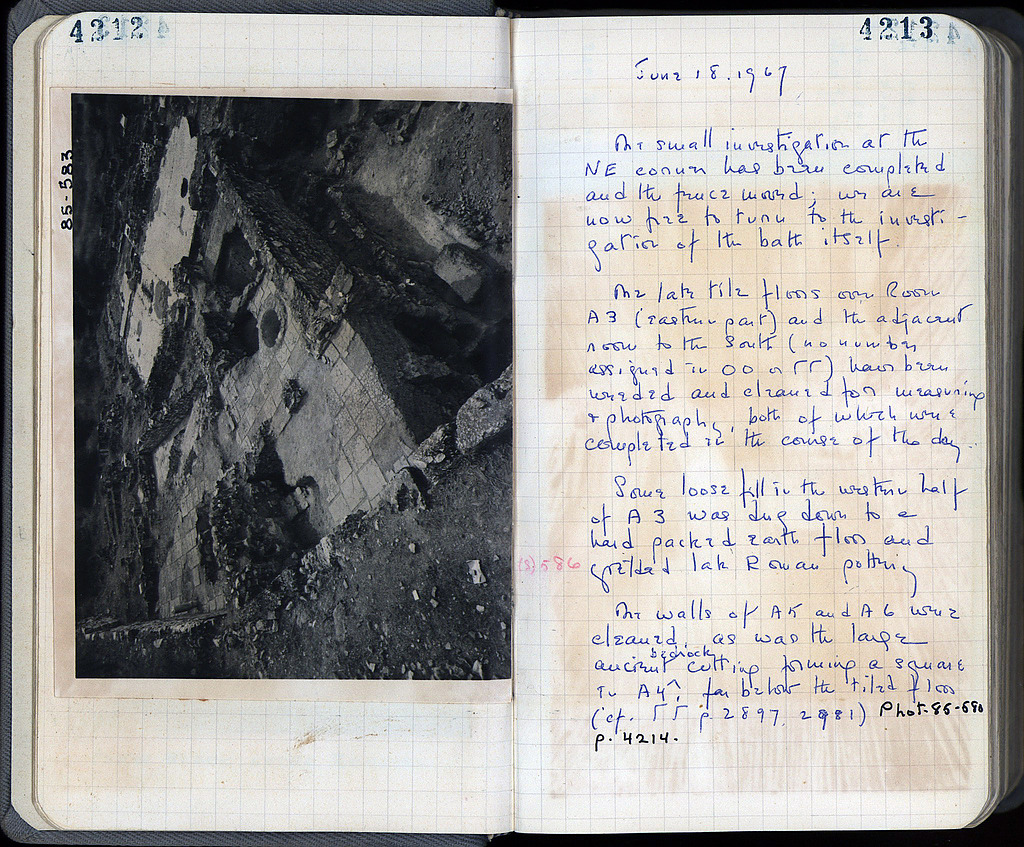 4212
85-583
4213
June 18, 1967
The small investigation at the
NE corner has been completed
and the fence moved; we are
now free to turn to the investi-
gation of the bath itself.
The late tile floors over Room
A3 (eastern part) and the adjacent
room to the South (no number
assigned in OO or ΓΓ) have been
weeded and cleaned for measuring
+ photography, both of which were
completed in the course of the day.
Some loose fill in the western half
of A3 was dug down to a
hard packed earth floor and
(8) 586
yielded late Roman pottery
The walls of A5 and A6 were
cleaned, as was the large
bedrock
ancient cutting forming a square
in A4^ far below the tiled floor
(cf. ΓΓ p. 2897, 2981) Phot. 85-580
p. 4214.